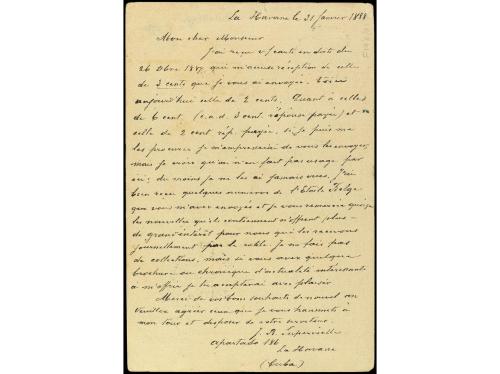 La Havane le 31 Janvier 1888
Mon cher Monsieur
J'ai reçu v/ carte en date du
26 Xbre 1887 qui m'accuse réception de celle
de 3 cents que je vous ai envoyée. Voici
aujourd'hui celle de 2 cents. Quant à celles
de 6 cent. (c.a.d. 3 cent. réponse payée) et
celle de 2 cent rép. payée, si je puis me
les procurer je m'empresserai de vous les envoyer,
mais je crois qu'on n'en fait pas usage par
ici; du moins je ne les ai jamais vues. J'ai
bien reçu quelques numéros de l'Etoile Belge
que vous m'avez envoyés et je vous remercie quoique
les nouvelles qu'ils contiennent n'offrent plus
de grand intérêt pour nous qui les recevons
journellement par le cable. Je ne fais pas
de collections, mais si vous avez quelque
brochure ou chronique d'actualité intéressante
à m'offrir je l'accepterai avec plaisir.
Merci de vos bons souhaits de nouvel an
Veuillez agréer ceux que je vous transmets à
mon tour et disposer de votre serviteur.
J. B. Supervielle
Apartado 186
La Havane
(Cuba)